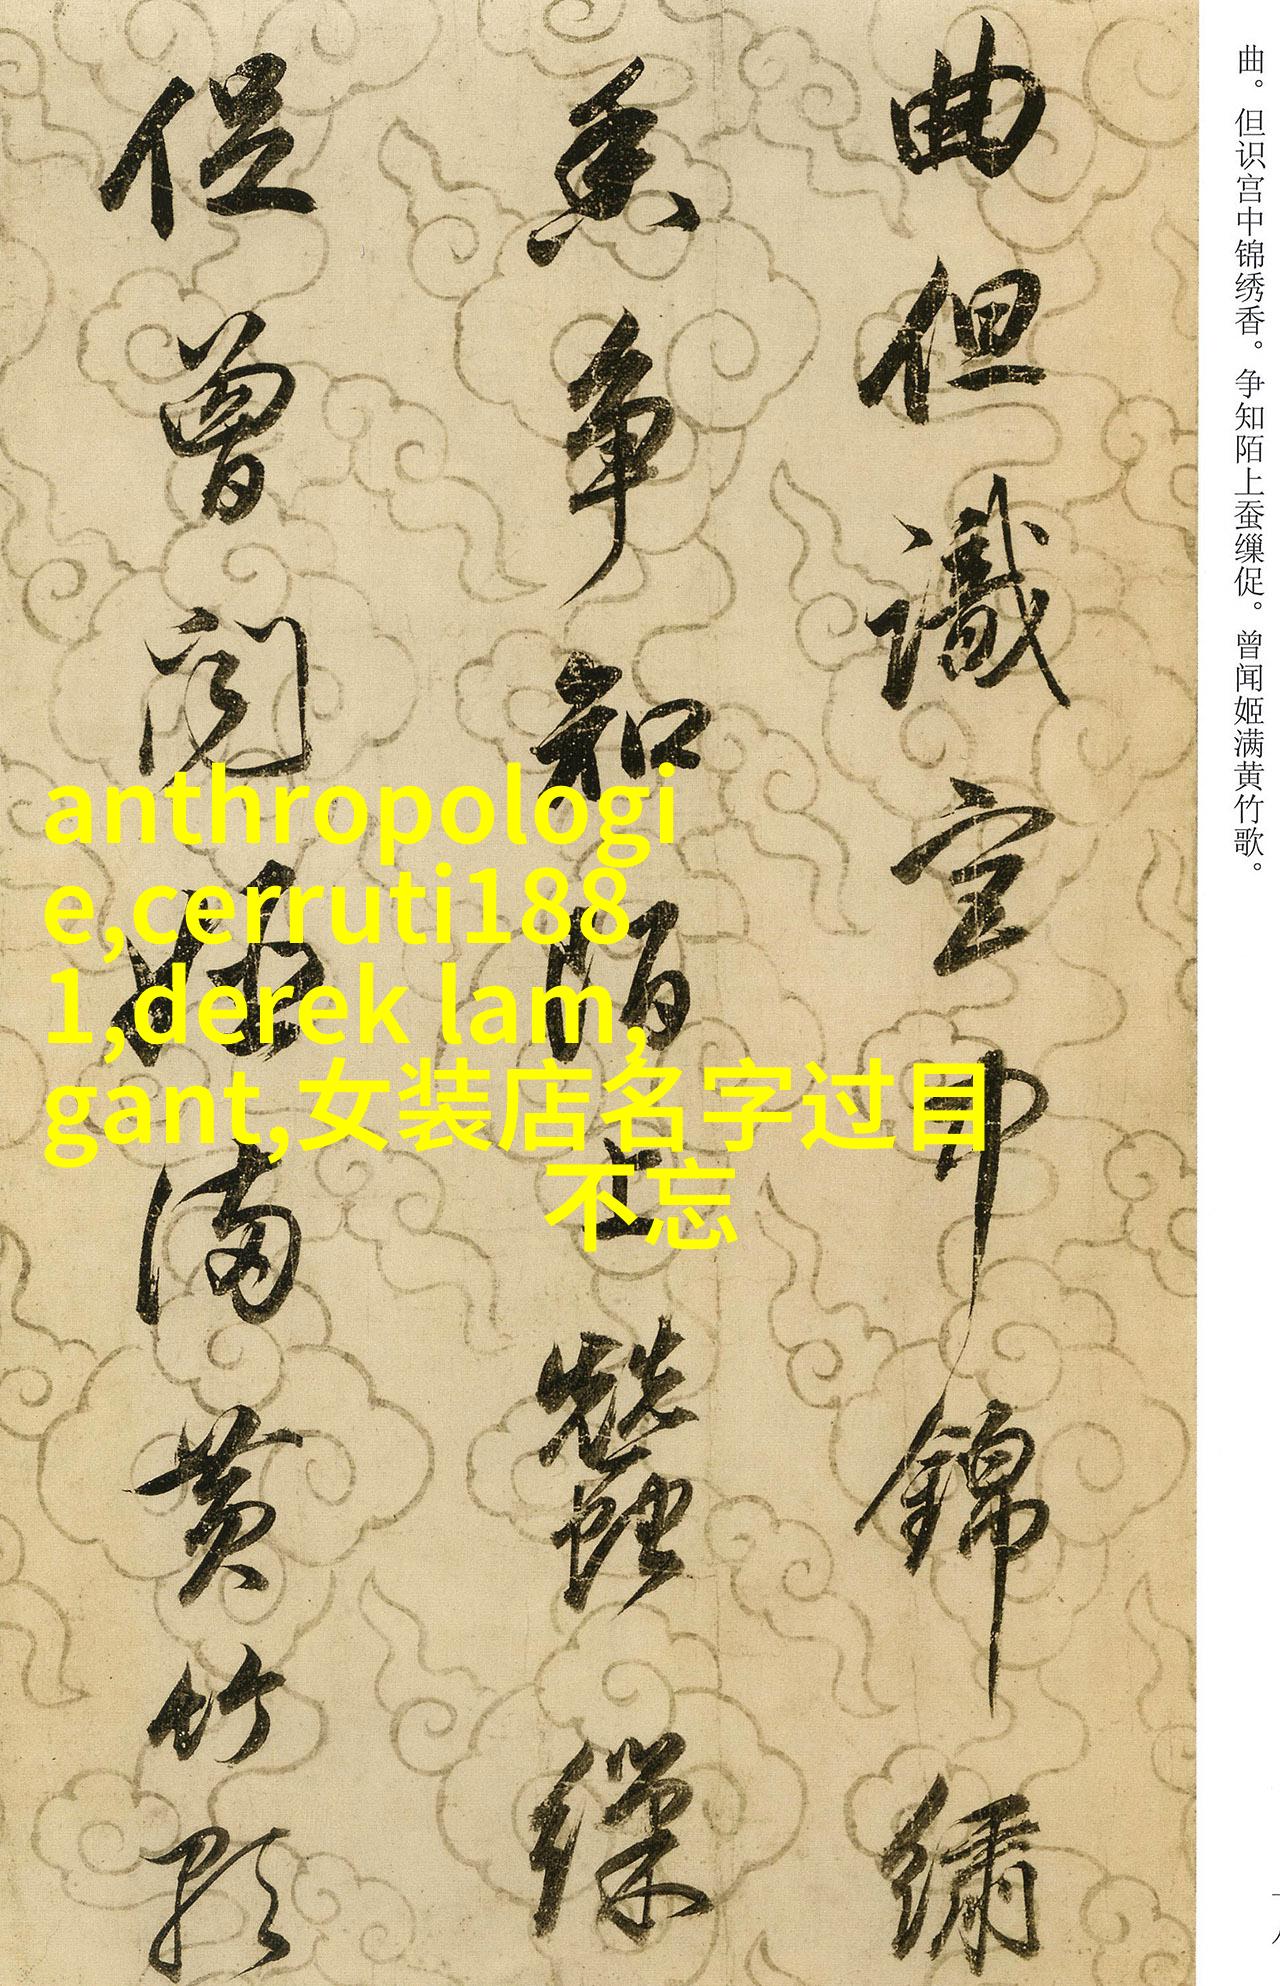 曲。但识宫中锦绣香。争知陌上蚕缫促。曾闻姬满黄竹歌。
曲但識宮中錦繡
香争知陌上蠶繅
促曾闻姬满黄竹歌
anthropologi
e,cerruti188
1,derek lam,
gant,女装店名字过目
不忘